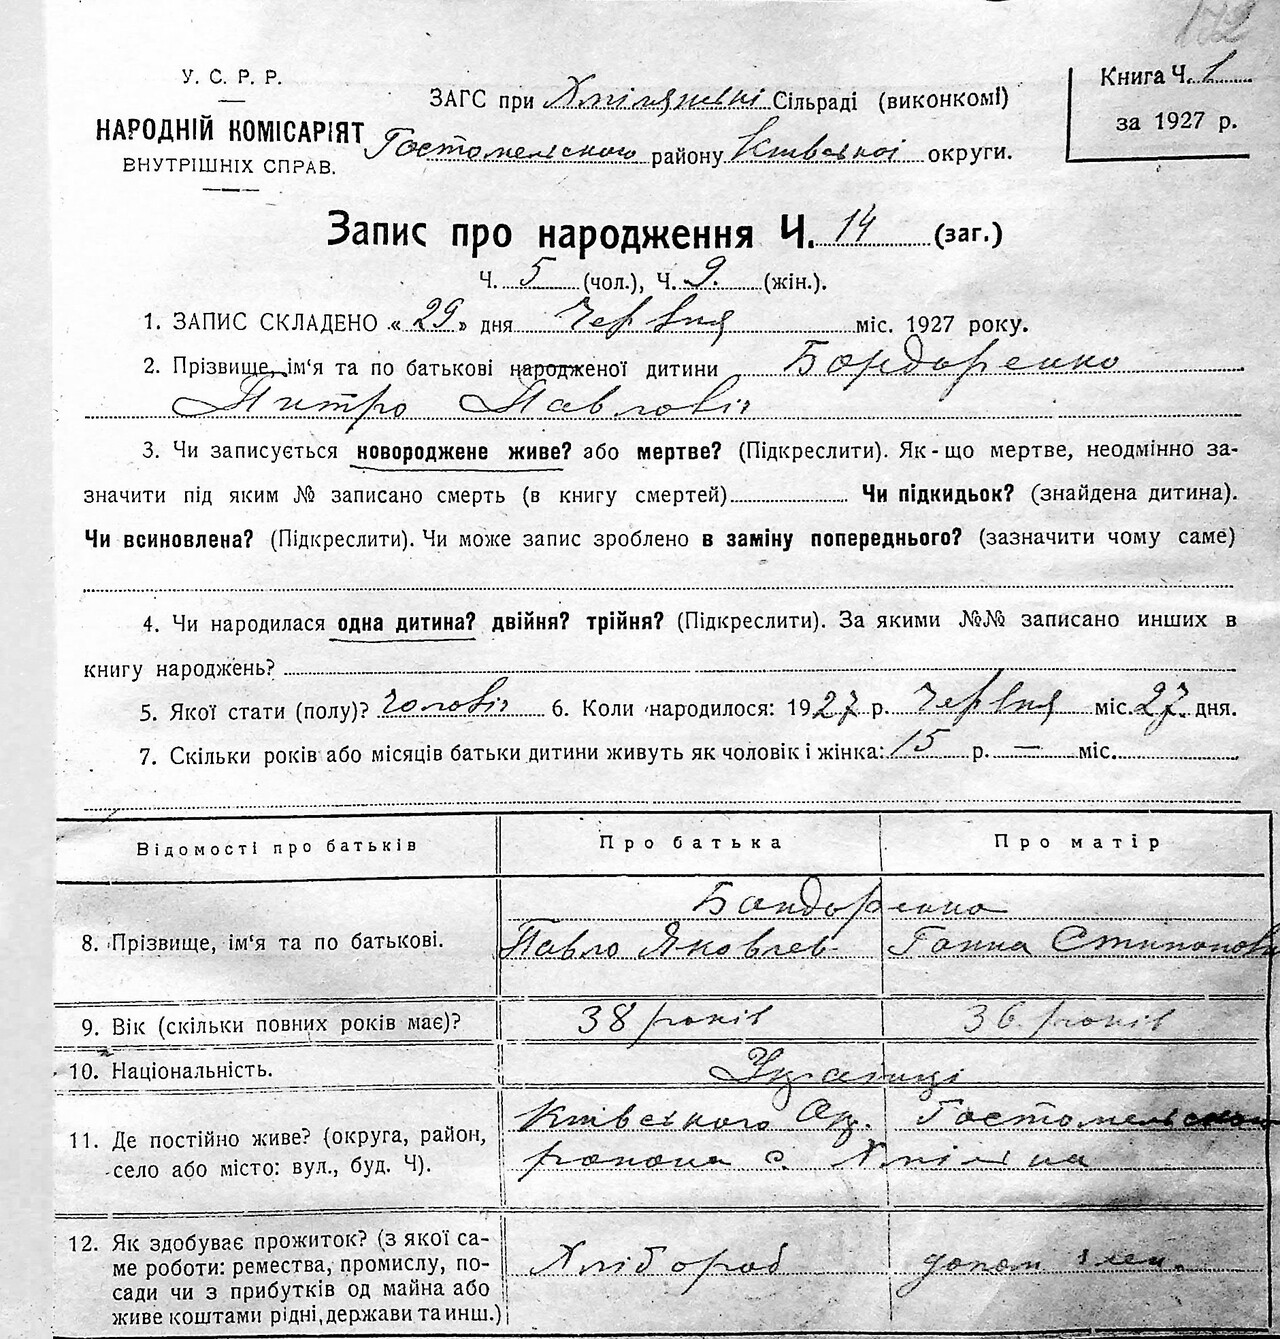 172
У. С. Р. Р.
НАРОДНІЙ КОМІСАРІЯТ
ВНУТРІШНІХ СПРАВ.
ЗАГС при Хмілянські Сільраді (виконкомі)
Гостомельского району Київської округи.
Книга Ч. 1
за 1927 р.
Запис про народження Ч. 14 (заг.)
Ч. 5 (чол.), Ч. 9. (жін.).
1. ЗАПИС СКЛАДЕНО «29» дня Червня міс. 1927 року.
2. Прізвище, ім'я та по батькові народженої дитини Бондоренко
Питро Павловіч
3. Чи записується новороджене живе? або мертве? (Підкреслити). Як-що мертве, неодмінно за-
значити під яким № записано смерть (в книгу смертей) Чи підкидьок? (знайдена дитина).
Чи всиновлена? (Підкреслити). Чи може запис зроблено в заміну попереднього? (зазначити чому саме)
4. Чи народилася одна дитина? двійня? трійня? (Підкреслити). За якими №№ записано инших в
книгу народжень?
5. Якої стати (полу)? чоловіч 6. Коли народилося: 1927 р. Червня міс. 27 дня.
7. Скільки років або місяців батьки дитини живуть як чоловік і жінка: 15 р. — міс.
Відомості про батьків Про батька Про матір
Бондоренко
8. Прізвище, ім'я та по батькові. Павло Яковлев Ганна Стипанови
9. Вік (скільки повних років має)? 38 років 36 років
10. Національність. Українці
11. Де постійно живе? (округа, район, село або місто: вул., буд. Ч). Київського Ок. Гостомельского
района с. Хміляна
12. Як здобуває прожиток? (з якої са-
ме роботи: ремества, промислу, по-
сади чи з прибутків од майна або
живе коштами рідні, держави та инш.) Хлібороб допом член.